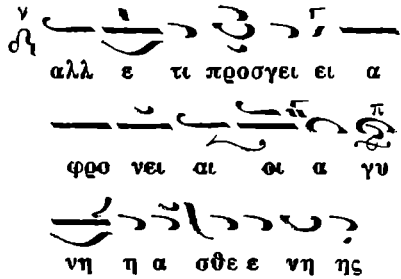 αλλ ε τι προσγει ει α
φρο νει αι οι α γυ
νη η α σθε ε νη ης